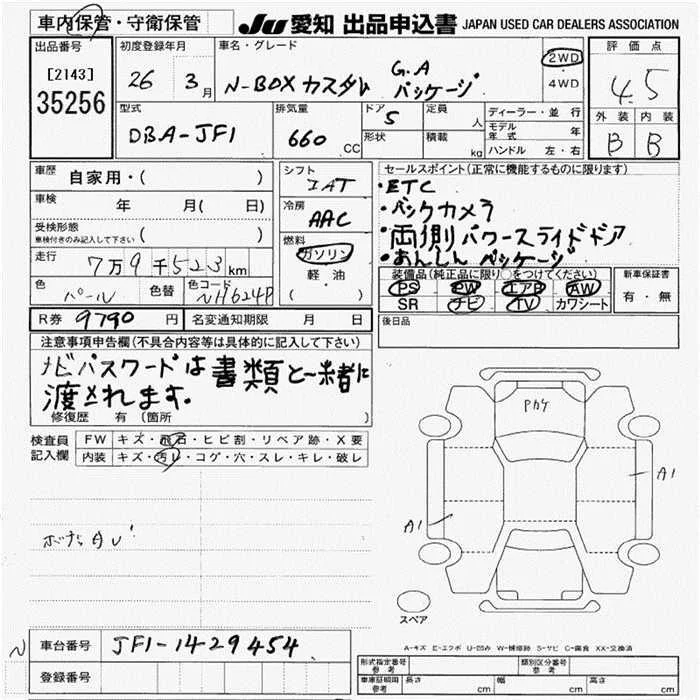 車内保管・守衛保管
JU 愛知 出品申込書 JAPAN USED CAR DEALERS ASSOCIATION
出品番号
[2143]
35256
初度登録年月
26 3月
車名・グレード
N-BOX カスタム G.A パッケージ
2WD
・
4WD
評価点
4.5
外装 内装
B B
型式
DBA-JF1
排気量
660 CC
ドア 5
形状
定員 人
積載 kg
ディーラー・並行
モデル年式 年
ハンドル 左・右
車歴 自家用・( )
車検 年 月( 日)
受検形態
車検付きのみ記入して下さい ( )
走行 7万9千523km
色 パール 色替 色コード NH624P
シフト IAT
冷房 AAC
燃料 ガソリン
軽・油
( )
セールスポイント(正常に機能するものに限ります)
・ETC
・バックカメラ
・両側パワースライドドア
・あんしんパッケージ
装備品(純正品に限り○をつけてください)
PS PW エアB AW
SR ナビ TV カワシート
新車保証書
有・無
R券 9790 円 名変通知期限 月 日
後日品
注意事項申告欄(不具合内容等は具体的に記入して下さい)
ナビパスワードは書類と一緒に
渡されます。
修復歴 有(箇所 )
検査員
記入欄
FW キズ・飛石・ヒビ割・リペア跡・X要
内装 キズ・汚レ・コゲ・穴・スレ・キレ・破レ
Pカケ
A1
A1
スペア
A-キズ E-エクボ U-凹み W-補修跡 S-サビ C-腐食 XX-交換済
N
車台番号 JF1-1429454
登録番号
形式指定番号
参考
類別区分番号
参考
車庫証明用
参考
長さ cm 幅 cm 高さ cm